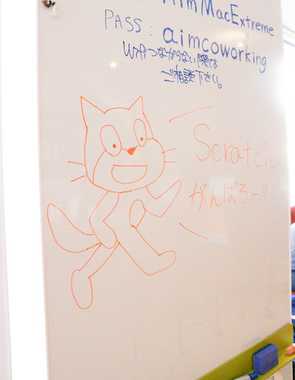 AimMacExtreme
PASS: aimcoworking
つながらない際は
ご相談下さい。
Scratch
がんばろー!!